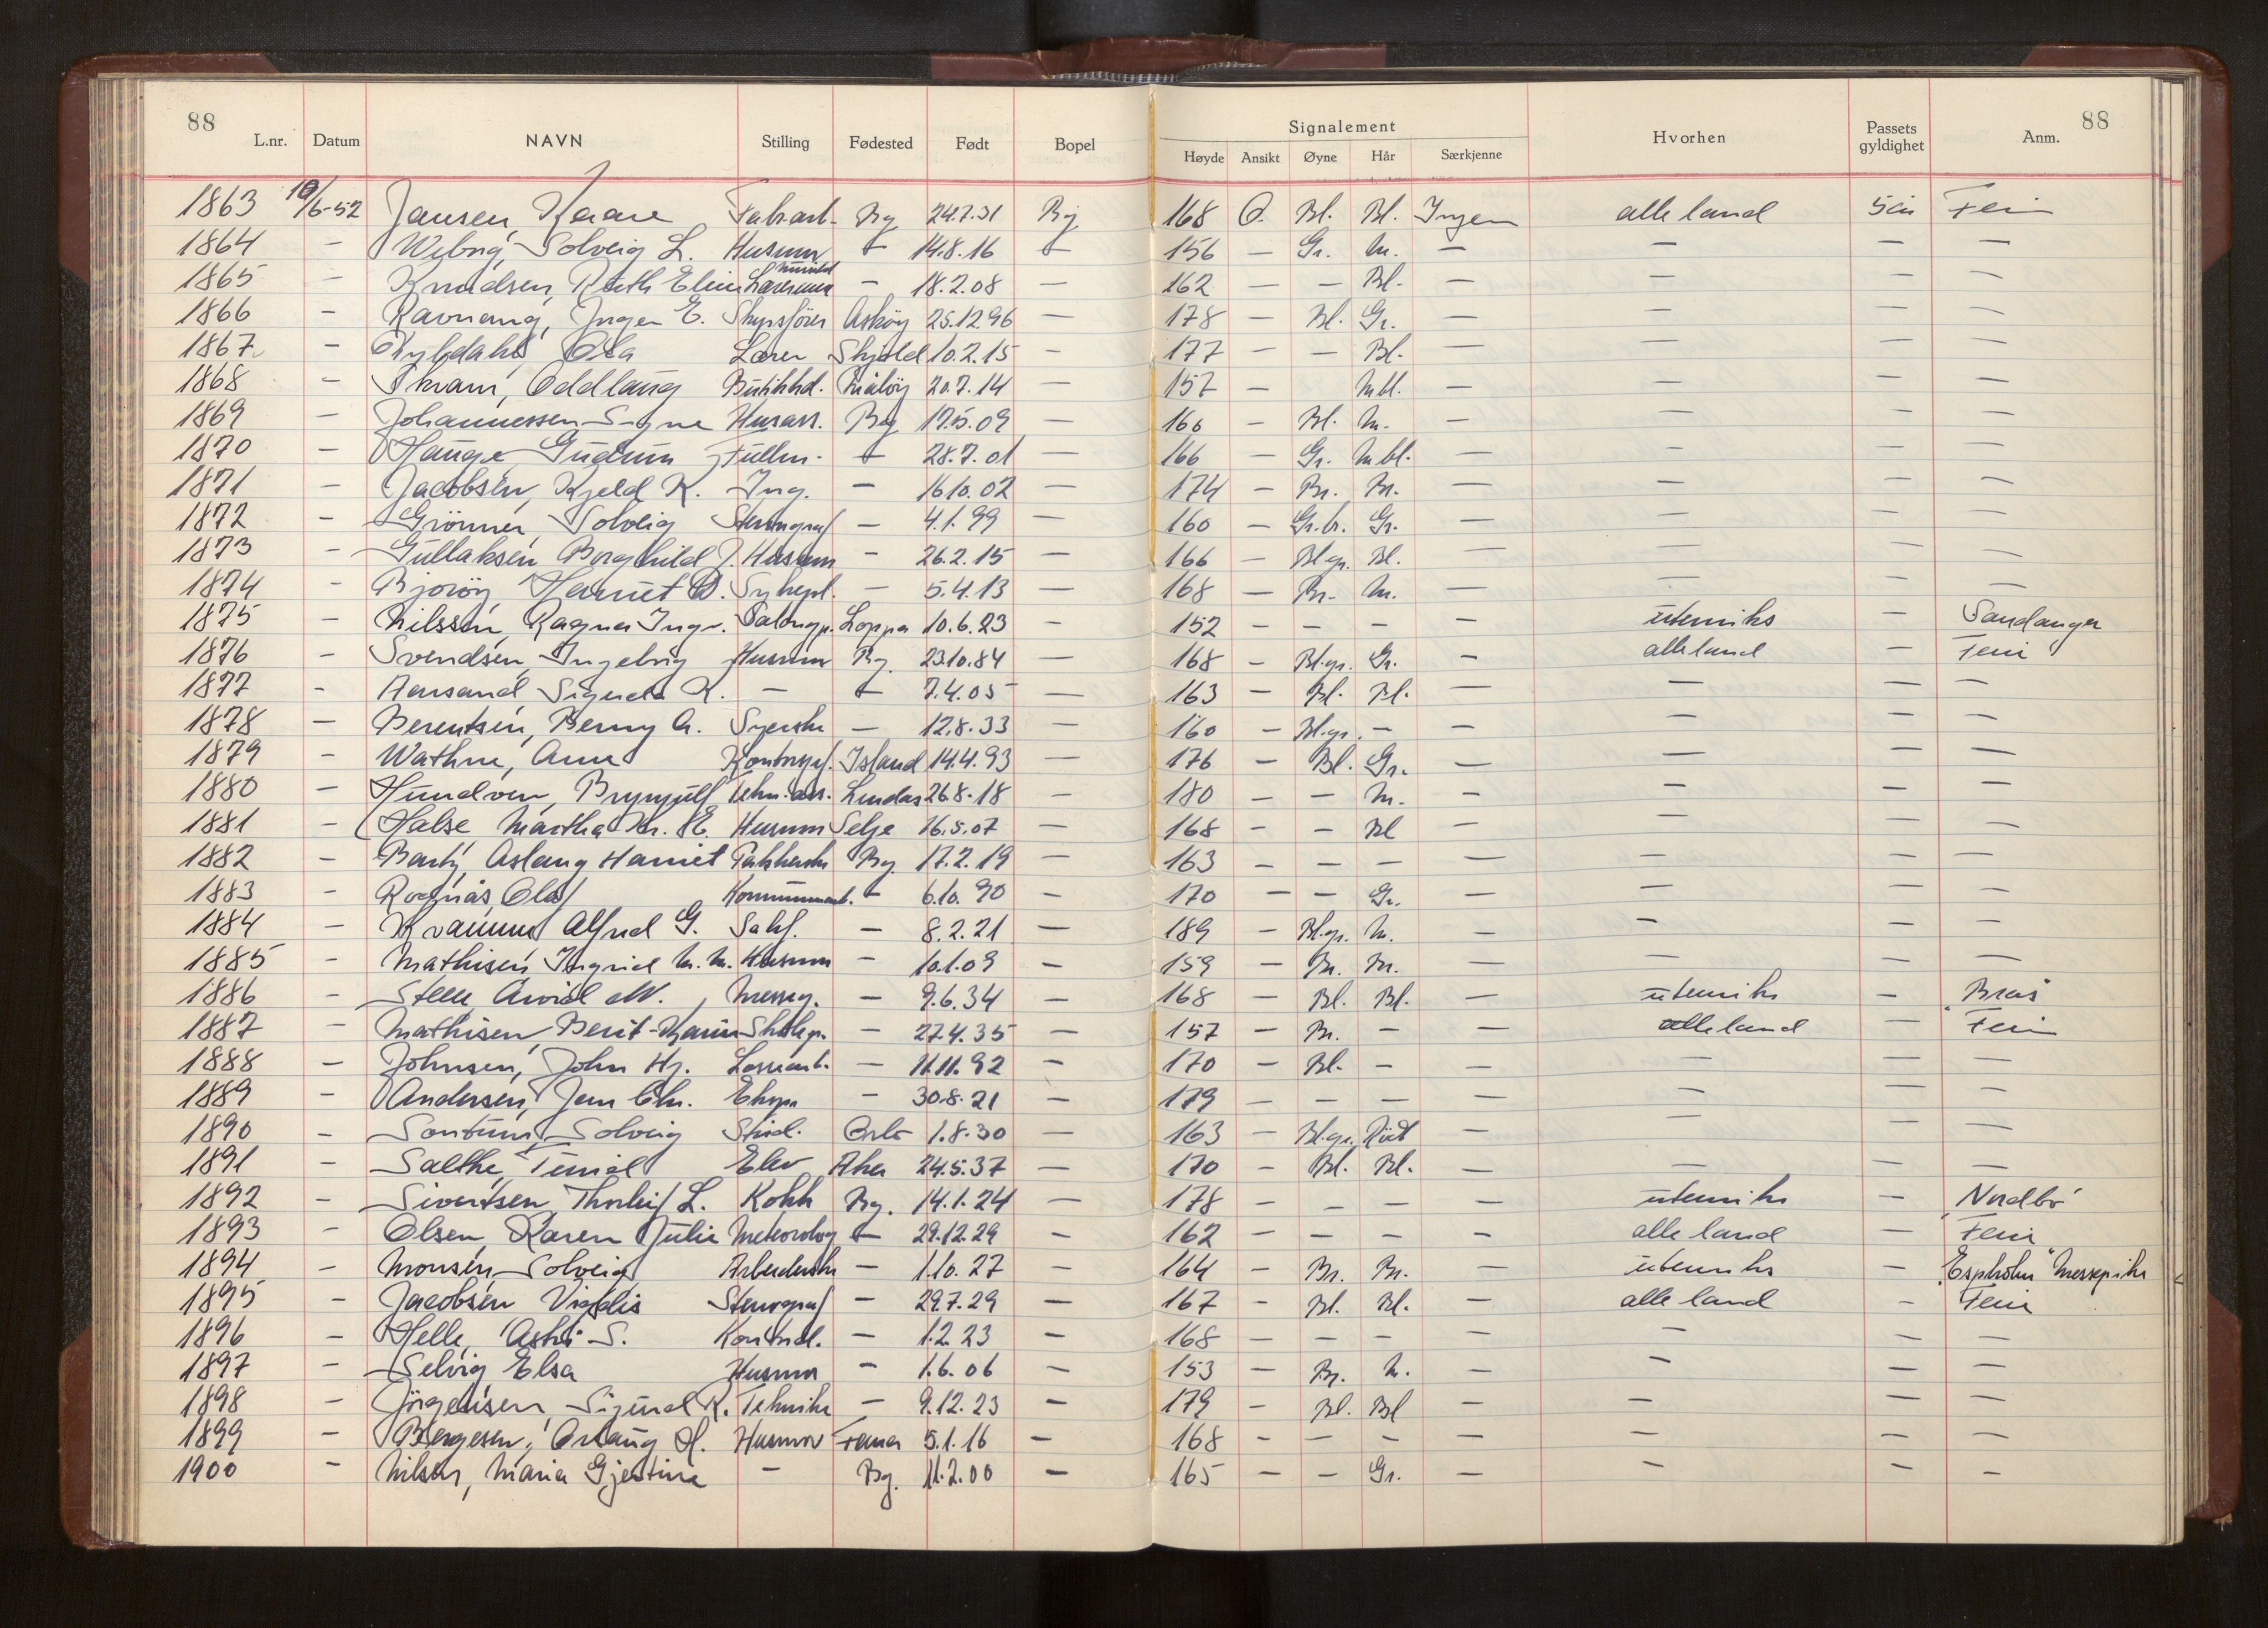 88 88
L.nr. Datum NAVN Stilling Fødested Født Bopel Signalement Hvorhen Passets gyldighet Anm.
Høyde Ansikt Øyne Hår Særkjenne
1863 10/6-52 Jansen, Kaare Fabrarb. Bg 24.7.31 Bg 168 O. Bl. Bl. Ingen alle land 5 år Feri
1864 – Solveig L. Husmor – 14.8.16 – 156 – Gr. M. – – – –
1865 – Knudsen, Ruth Elin Lærerinne – 18.2.08 – 162 – – Bl. – – – –
1866 – Ravnang, Inger E. Askøy 25.12.96 – 178 – Bl. Gr. – – – –
1867 – Ola Lærer Skjold 10.2.15 – 177 – – Bl. – – – –
1868 – Skram, Oddlaug 20.7.14 – 157 – Mbl. – – – –
1869 – Johannessen Signe Husass. Bg 17.5.09 – 166 – Bl. M. – – – –
1870 – Hauge Gudrun Fullm. – 28.7.01 – 166 – Gr. Mbl. – – – –
1871 – Jacobsen, Kjeld K. Ing. – 16.10.02 – 174 – Br. Br. – – – –
1872 – Grønner, Solveig Stenograf – 4.1.99 – 160 – Gr.br. Gr. – – – –
1873 – Gullaksen Borghild J. Husmor – 26.2.15 – 166 – Bl.gr. Bl. – – – –
1874 – Bjorøy Harriet D. Sykepl. – 5.4.13 – 168 – Br. M. – – – –
1875 – Nilssen, Ragna Ingr. Salongp. Loppa 10.6.23 – 152 – – – – utenriks – Sandanger
1876 – Svendsen, Ingebrig Husmor Bg. 23.10.84 – 168 – Bl.gr. Gr. – alle land – Feri
1877 – Aarsand Signela K. – – 7.4.05 – 163 – Bl. Bl. – – – –
1878 – Berentsen, Berny A. Syerske – 12.8.33 – 160 – Bl.gr. – – – – –
1879 – Wathne, Arne Island 14.4.93 – 176 – Bl. Gr. – – – –
1880 – Hundven, Brynjulf Tekn.ass. Lindås 26.8.18 – 180 – – M. – – – –
1881 – Halse Martha Kr. E. Husmor Selje 16.5.07 – 168 – – Bl – – – –
1882 – Aslaug Harriet Pakkerske Bg. 17.2.19 – 163 – – – – – – –
1883 – Rognås, Olaf Kommunearb. – 6.10.90 – 170 – – Gr. – – – –
1884 – Kvamme Alfred G. Sakf. – 8.2.21 – 189 – Bl.gr. M. – – – –
1885 – Mathisen Ingrid M. M. Husmor – 10.1.09 – 159 – Br. Br. – – – –
1886 – Steen Arvid W. Messeg. – 9.6.34 – 168 – Bl. Bl. – utenriks – "Bras"
1887 – Mathisen, Berit-Karin Skolep. – 27.4.35 – 157 – Br. – – alle land – Feri
1888 – Johnsen, John Hj. Lossearb. – 11.11.92 – 170 – Bl. – – – – –
1889 – Andersen Jan Chr. Eksp. – 30.8.21 – 179 – – – – – – –
1890 – Sontum, Solveig Stud. Oslo 1.8.30 – 163 – Bl.gr. Rødt – – – –
1891 – Salthe, Elev Aker 24.5.37 – 170 – Bl. Bl. – – – –
1892 – Sivertsen, Thorleif L. Kokk Bg. 14.1.24 – 178 – – – – utenriks – "Nordbo"
1893 – Olsen, Karen Julie Meteorolog – 29.12.29 – 162 – – – – alle land – Feri
1894 – Monsen, Solveig Arbeiderske – 1.10.27 – 164 – Br. Br. – utenriks – "Espholm" Messepike
1895 – Jacobsen Vigdis Stenograf – 29.7.29 – 167 – Bl. Bl. – alle land – Feri
1896 – Helle, S. Kontrol. – 1.2.23 – 168 – – – – – – –
1897 – Selvig Elsa Husmor – 1.6.06 – 153 – Br. M. – – – –
1898 – Jørgensen, Sigurd K. Tekniker – 9.12.23 – 179 – Bl. Bl – – – –
1899 – Børgesen, Aslaug H. Husmor Fana 5.1.16 – 168 – – – – – – –
1900 – Nilsen, Maria Gjertine – Bg. 11.2.00 – 165 – – Gr. – – – –